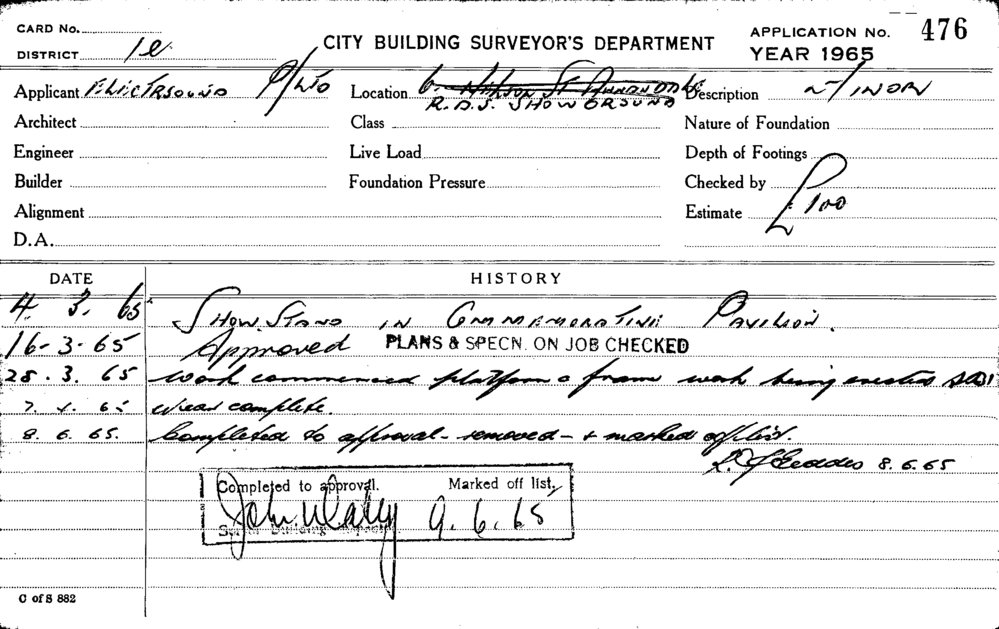 CARD No.
DISTRICT 1e
CITY BUILDING SURVEYOR'S DEPARTMENT
APPLICATION No. 476
YEAR 1965
Applicant ELECTRSOUND P/LTD Location 6. NELSON ST ANNANDALE Description
R.A.S. SHOWGROUND
Architect Class Nature of Foundation
Engineer Live Load Depth of Footings
Builder Foundation Pressure Checked by
Alignment Estimate £100
D.A.
DATE HISTORY
4. 3. 65 SHOW STAND IN COMMEMORATIVE PAVILION.
16-3-65 Approved PLANS & SPECN. ON JOB CHECKED
25.3.65 Work commenced platform & frame work being erected
7. 4. 65 complete.
8. 6. 65. Completed to approval - removed - & marked off list.
Geddes 8.6.65
Completed to approval. Marked off list,
John 9.6.65
Building Inspector
C of S 882